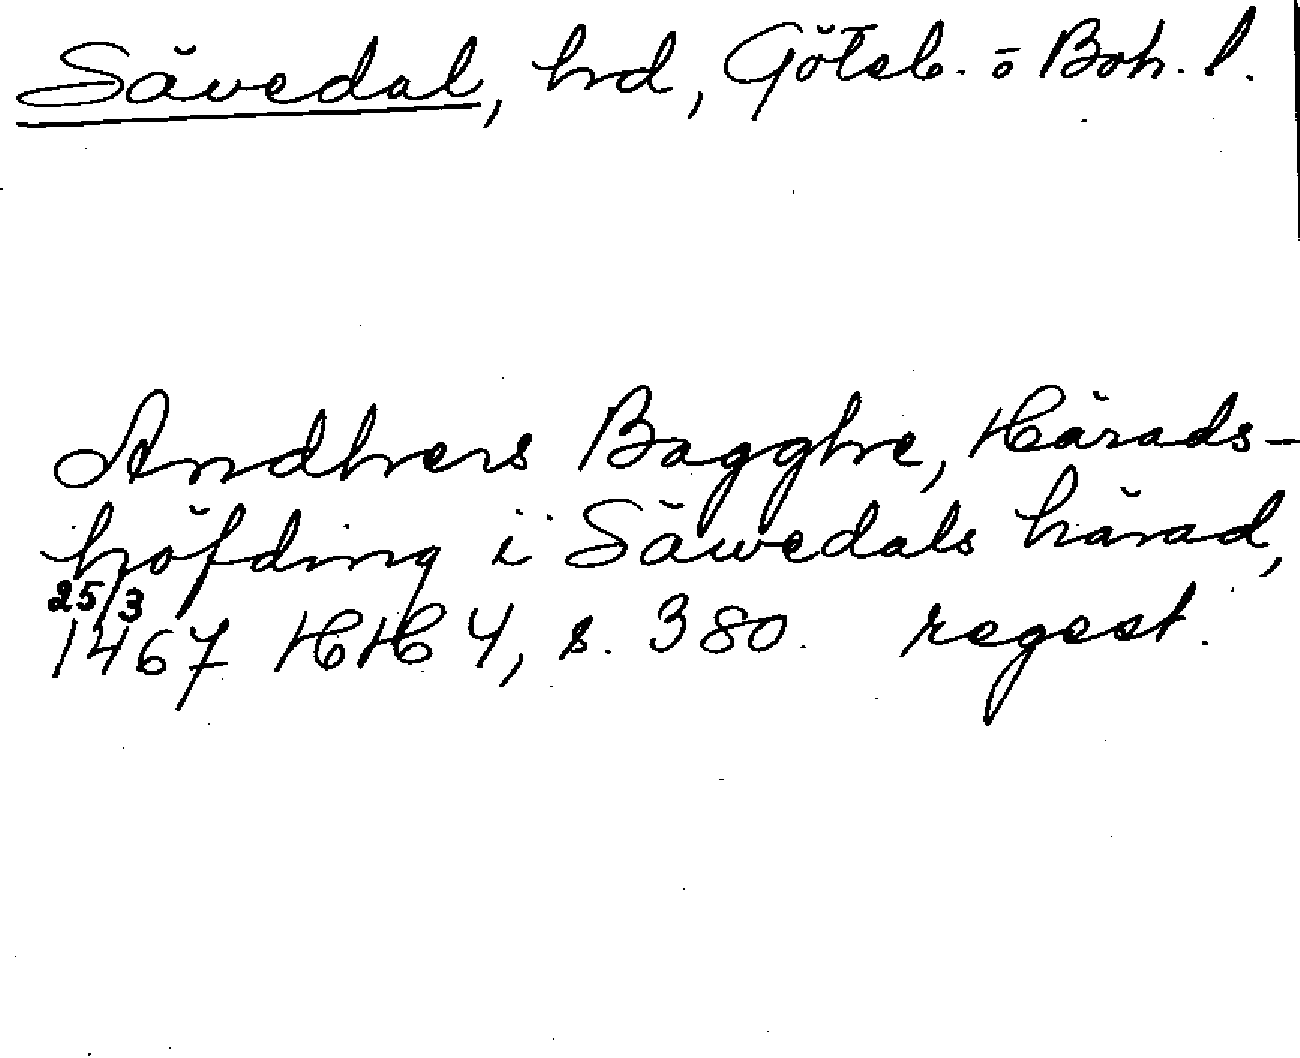 Sävedal, hd, Göteb. o Boh. l.
Andhers Bagghe, Härads-
höfding i Säwedals härad,
25/3
1467 HH 4, s. 380. regest.